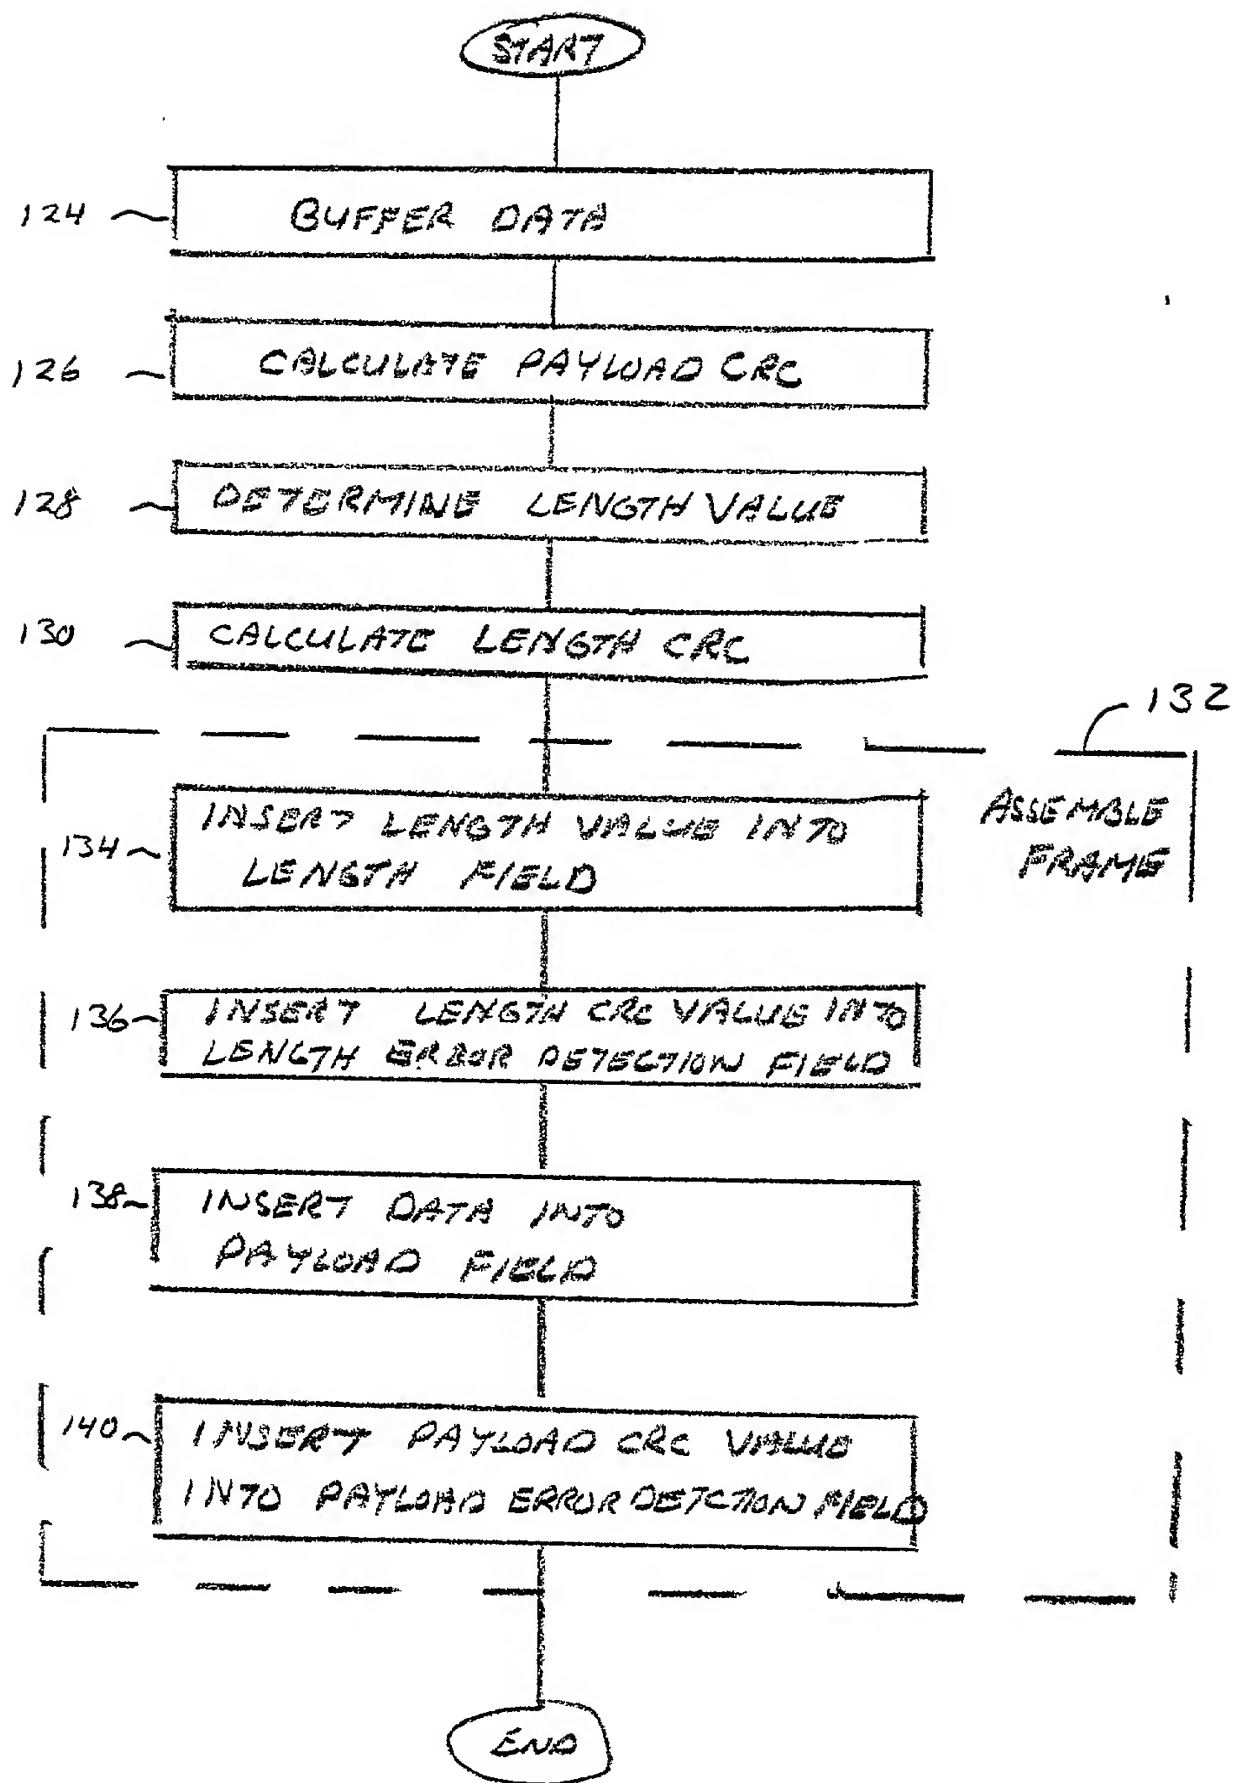 START
124
BUFFER DATA
126
CALCULATE PAYLOAD CRC
128
DETERMINE LENGTH VALUE
130
CALCULATE LENGTH CRC
132
ASSEMBLE
FRAME
134
INSERT LENGTH VALUE INTO
LENGTH FIELD
136
INSERT LENGTH CRC VALUE INTO
LENGTH ERROR DETECTION FIELD
138
INSERT DATA INTO
PAYLOAD FIELD
140
INSERT PAYLOAD CRC VALUE
INTO PAYLOAD ERROR DETCTION FIELD
END